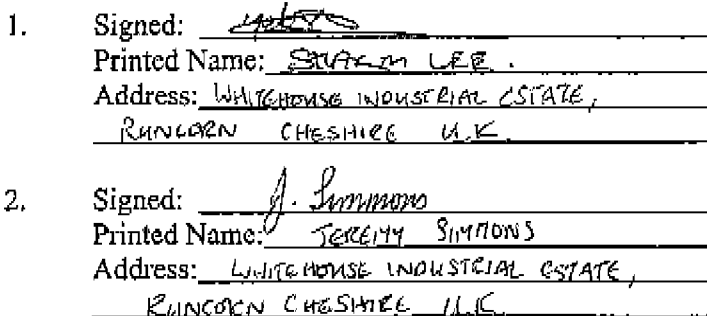 1. Signed:
Printed Name: LEE.
Address: WHITEHOUSE INDUSTRIAL ESTATE,
RUNCORN CHESHIRE U.K.
2. Signed: J. Simmons
Printed Name: JEREMY SIMMONS
Address: WHITEHOUSE INDUSTRIAL ESTATE,
RUNCORN CHESHIRE U.K.